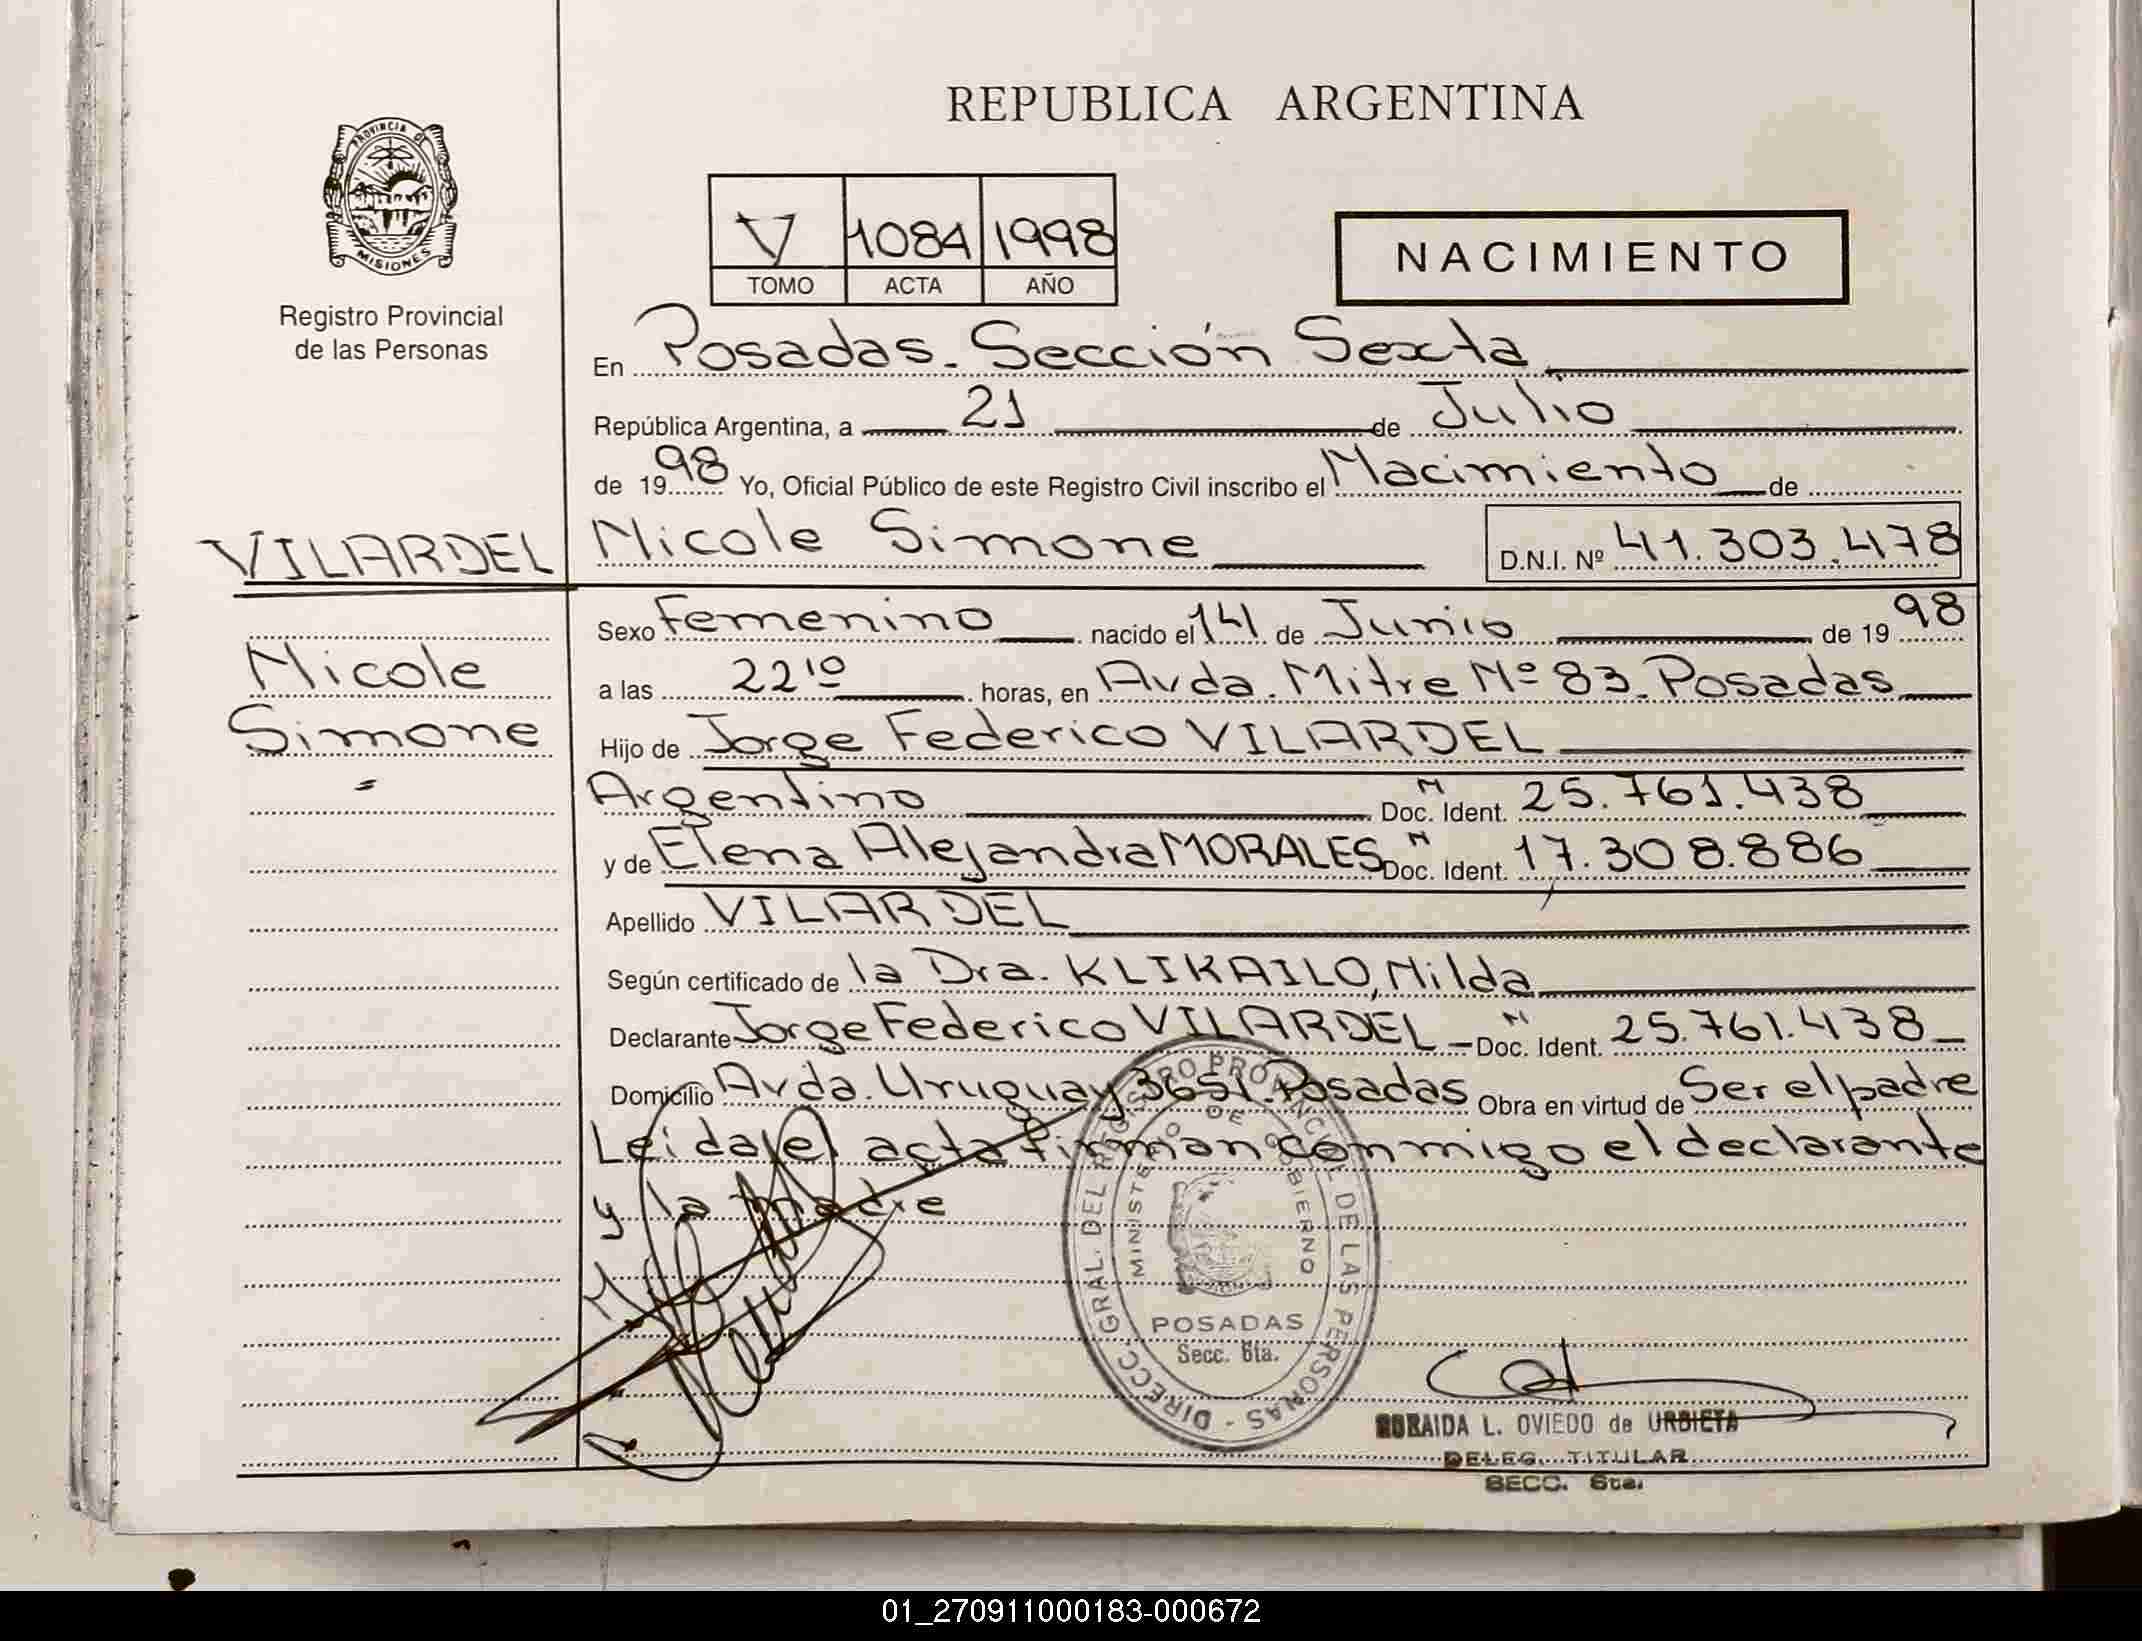 REPUBLICA ARGENTINA
PROVINCIA DE MISIONES
Registro Provincial
de las Personas
V 1084 1998
TOMO ACTA AÑO
NACIMIENTO
En Posadas. Sección Sexta
República Argentina, a 21 de Julio
de 1998 Yo, Oficial Público de este Registro Civil inscribo el Nacimiento de
VILARDEL
Nicole Simone D.N.I. Nº 41.303.478
Nicole
Simone
Sexo Femenino nacido el 14 de Junio de 1998
a las 22'10 horas, en Avda. Mitre Nº 83. Posadas
Hijo de Jorge Federico VILARDEL
Argentino Doc. N Ident. 25.761.438
y de Elena Alejandra MORALES Doc. N Ident. 17.308.886
Apellido VILARDEL
Según certificado de la Dra. KLIKAILO, Nilda
Declarante Jorge Federico VILARDEL Doc. N Ident. 25.761.438
Domicilio Avda. Uruguay 3651. Posadas Obra en virtud de Ser el padre
Leida el acta firman conmigo el declarante
y la madre
DIRECC. GRAL. DEL REGISTRO PROVINCIAL DE LAS PERSONAS
MINISTERIO DE GOBIERNO
POSADAS
Secc. 6ta.
ZORAIDA L. OVIEDO de URBIETA
DELEG. TITULAR
SECC. 6ta.
01_270911000183-000672